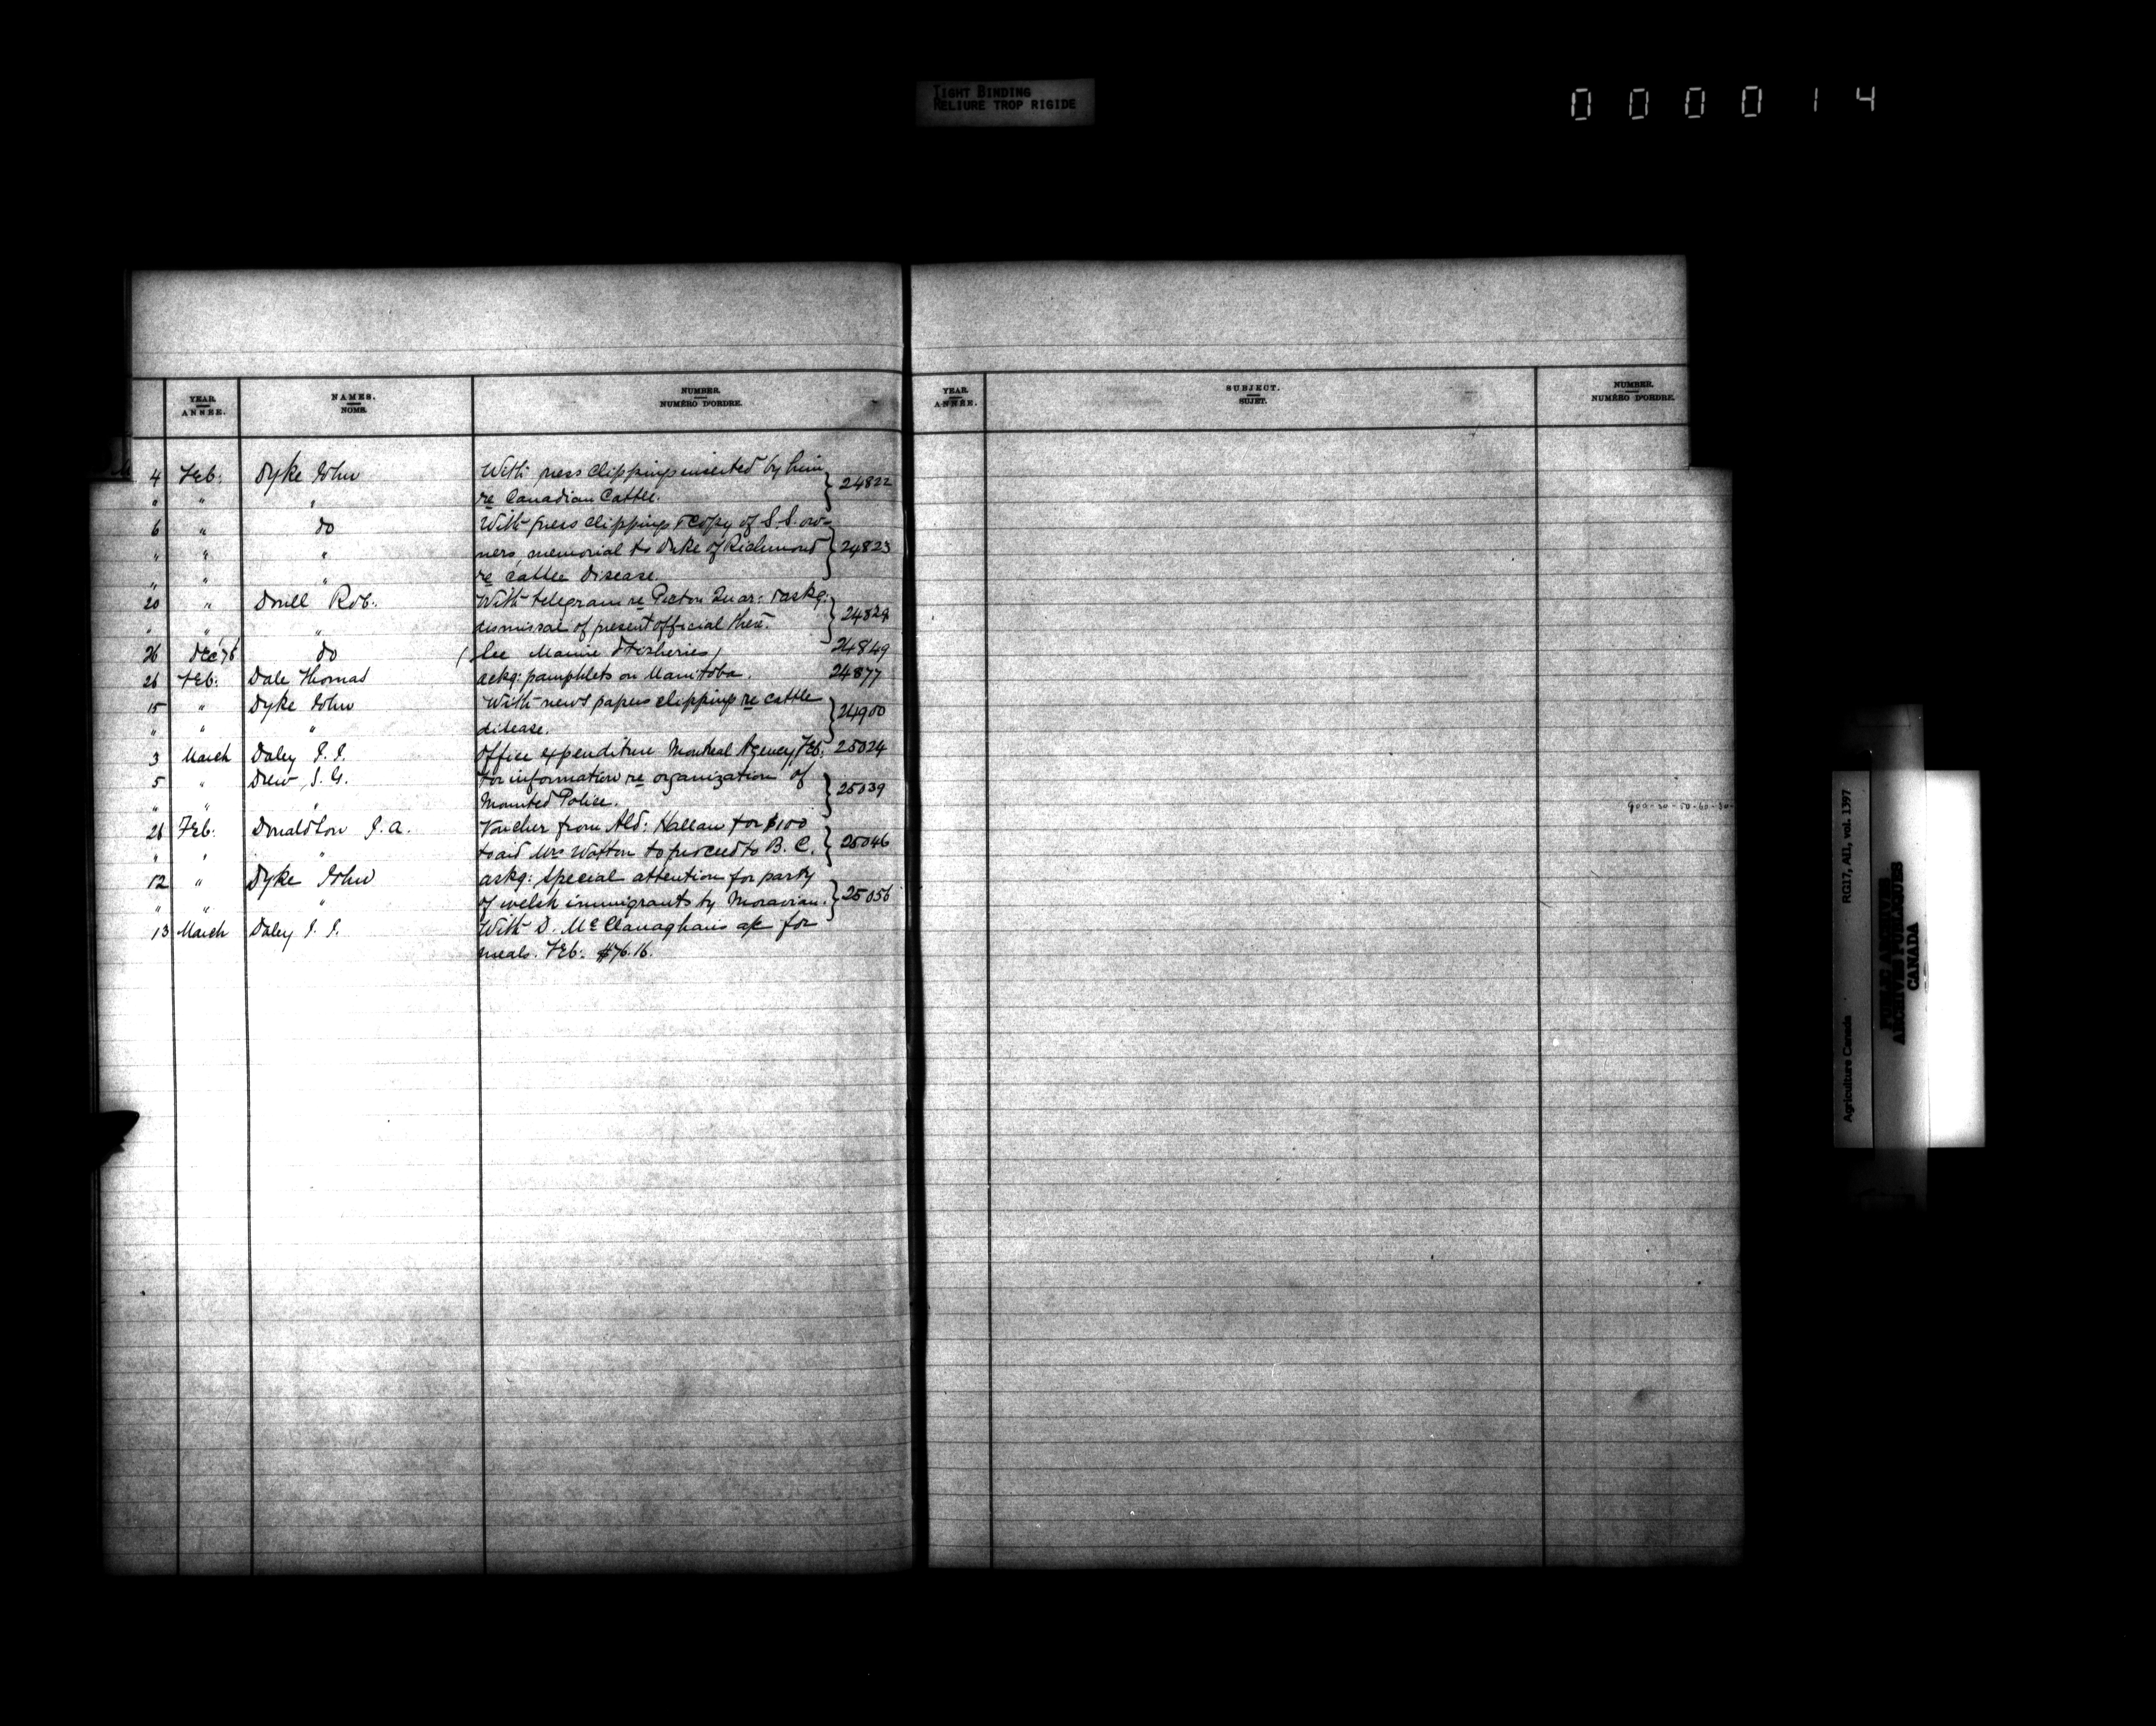 TIGHT BINDING
RELIURE TROP RIGIDE
000014
YEAR. NAMES. NUMBER.
ANNÉE. NOMS. NUMÉRO D'ORDRE.
YEAR. SUBJECT. NUMBER.
ANNÉE. SUJET. NUMÉRO D'ORDRE.
4 Feb: Dyke John With press clippings inserted by him
" " " re Canadian Cattle. } 24822
6 " do With press clippings & copy of S.S. ow-
" " " ners memorial to Duke of Richmond } 24823
" " " re cattle disease.
20 " Doull Rob. With telegram re Pictou Quar: & askg:
" " " dismissal of present official there. } 24829
26 Dec 78 do (See Marine & Fisheries) 24849
26 Feb: Dale Thomas askg: pamphlets on Manitoba. 24877
15 " Dyke John With news papers clipping re cattle
" " " disease. } 24900
3 March Daley J. J. Office expenditure Montreal Agency, Feb. 25024
5 " Drew, S. G. For information re organization of
" " " Mounted Police. } 25039
28 Feb: Donaldson J. A. Voucher from Ald: Hallam for $100
" " " to aid Mrs to proceed to B. C. } 25046
12 " Dyke John askg: special attention for party
" " " of welsh immigrants by Moravian. } 25056
13 March Daley J. J. With D. McClanaghan's a/c for
meals. Feb: $76.16.
RG17, AII, vol. 1397
Agriculture Canada
PUBLIC ARCHIVES
ARCHIVES PUBLIQUES
CANADA